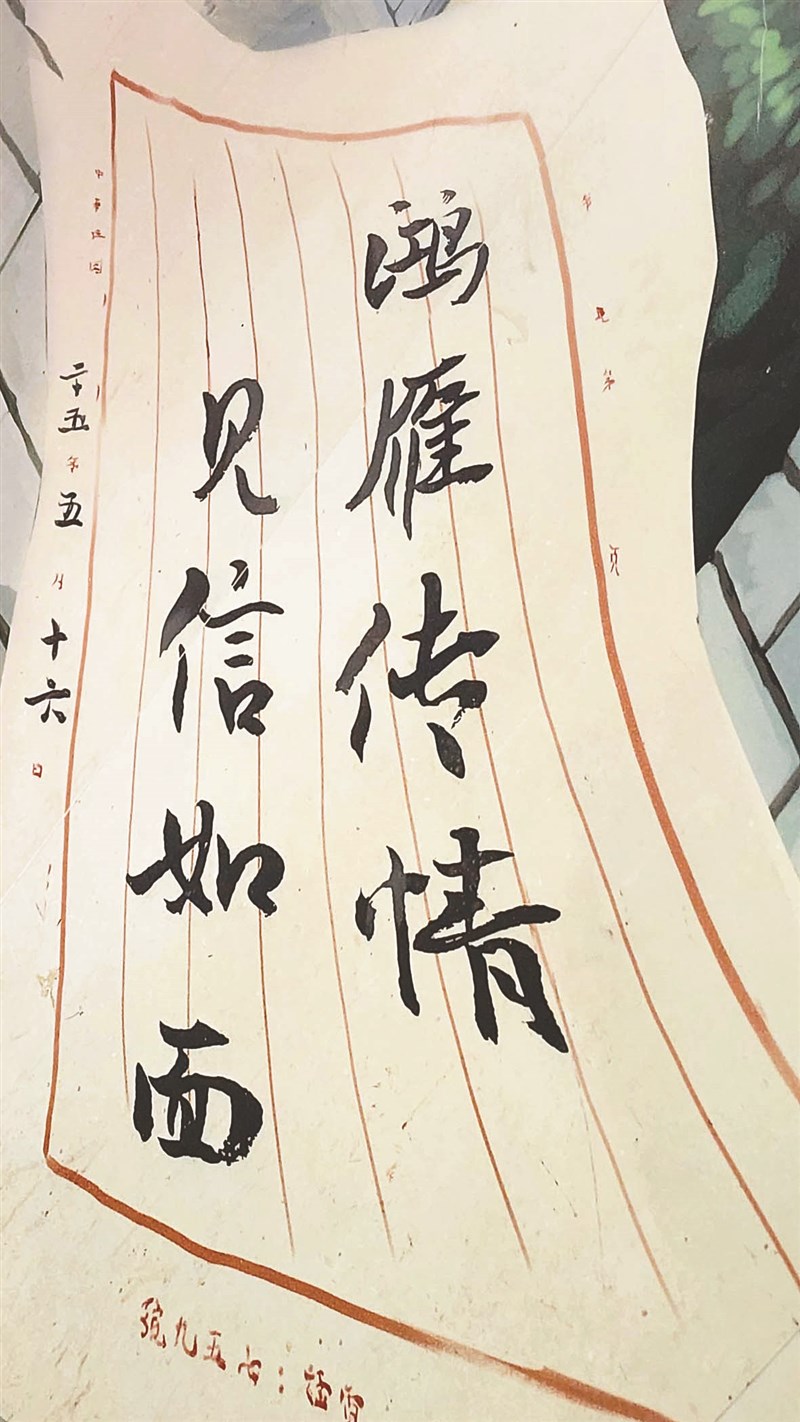 鸿雁传情
见信如面
中華民國二十五年五月十六日
電話：七五九號